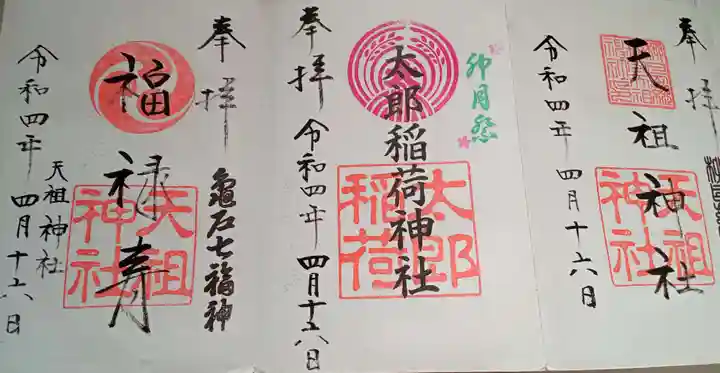 奉拝
天祖神社
天祖神社
令和四年 四月十六日
奉拝
卯月祭
太郎稲荷神社
太郎稲荷
令和四年 四月十六日
奉拝
亀石七福神
福禄寿
天祖神社
天祖神社
令和四年 四月十六日